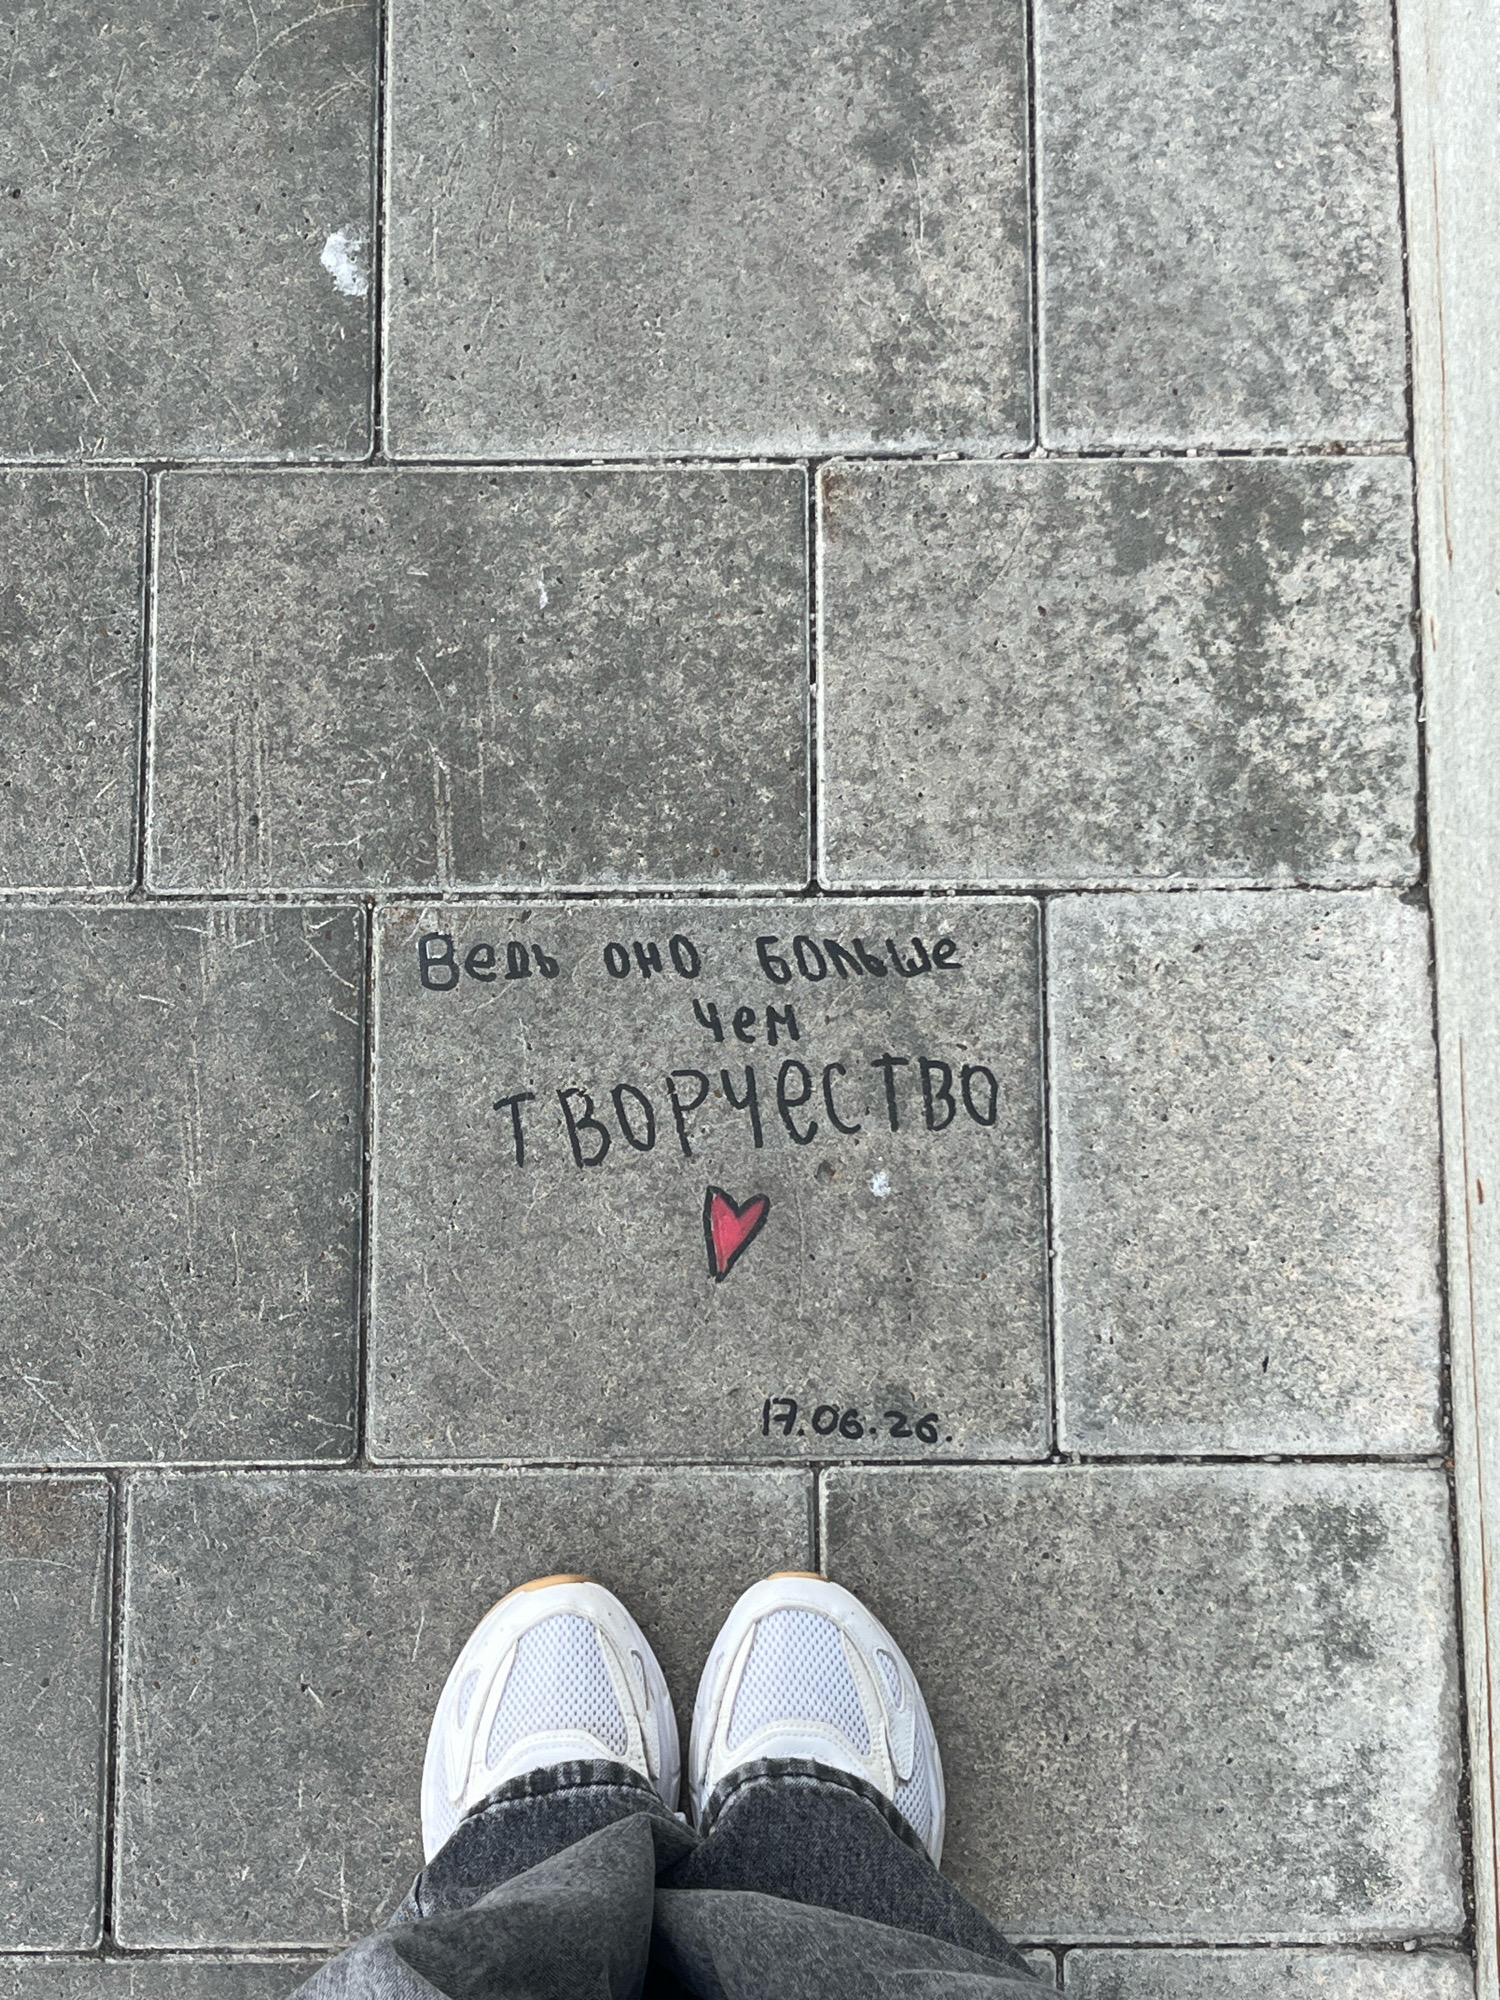 Ведь оно больше
чем
ТВОРЧЕСТВО
17.06.26.